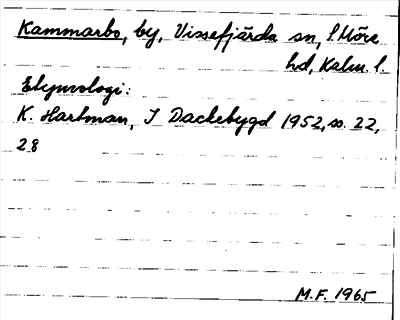 Kammarbo, by, Vissefjärda sn, S. Möre
hd, Kalm. l.
Etymologi:
K. Hartman, I Dackebygd 1952, ss. 22,
28
M.F. 1965